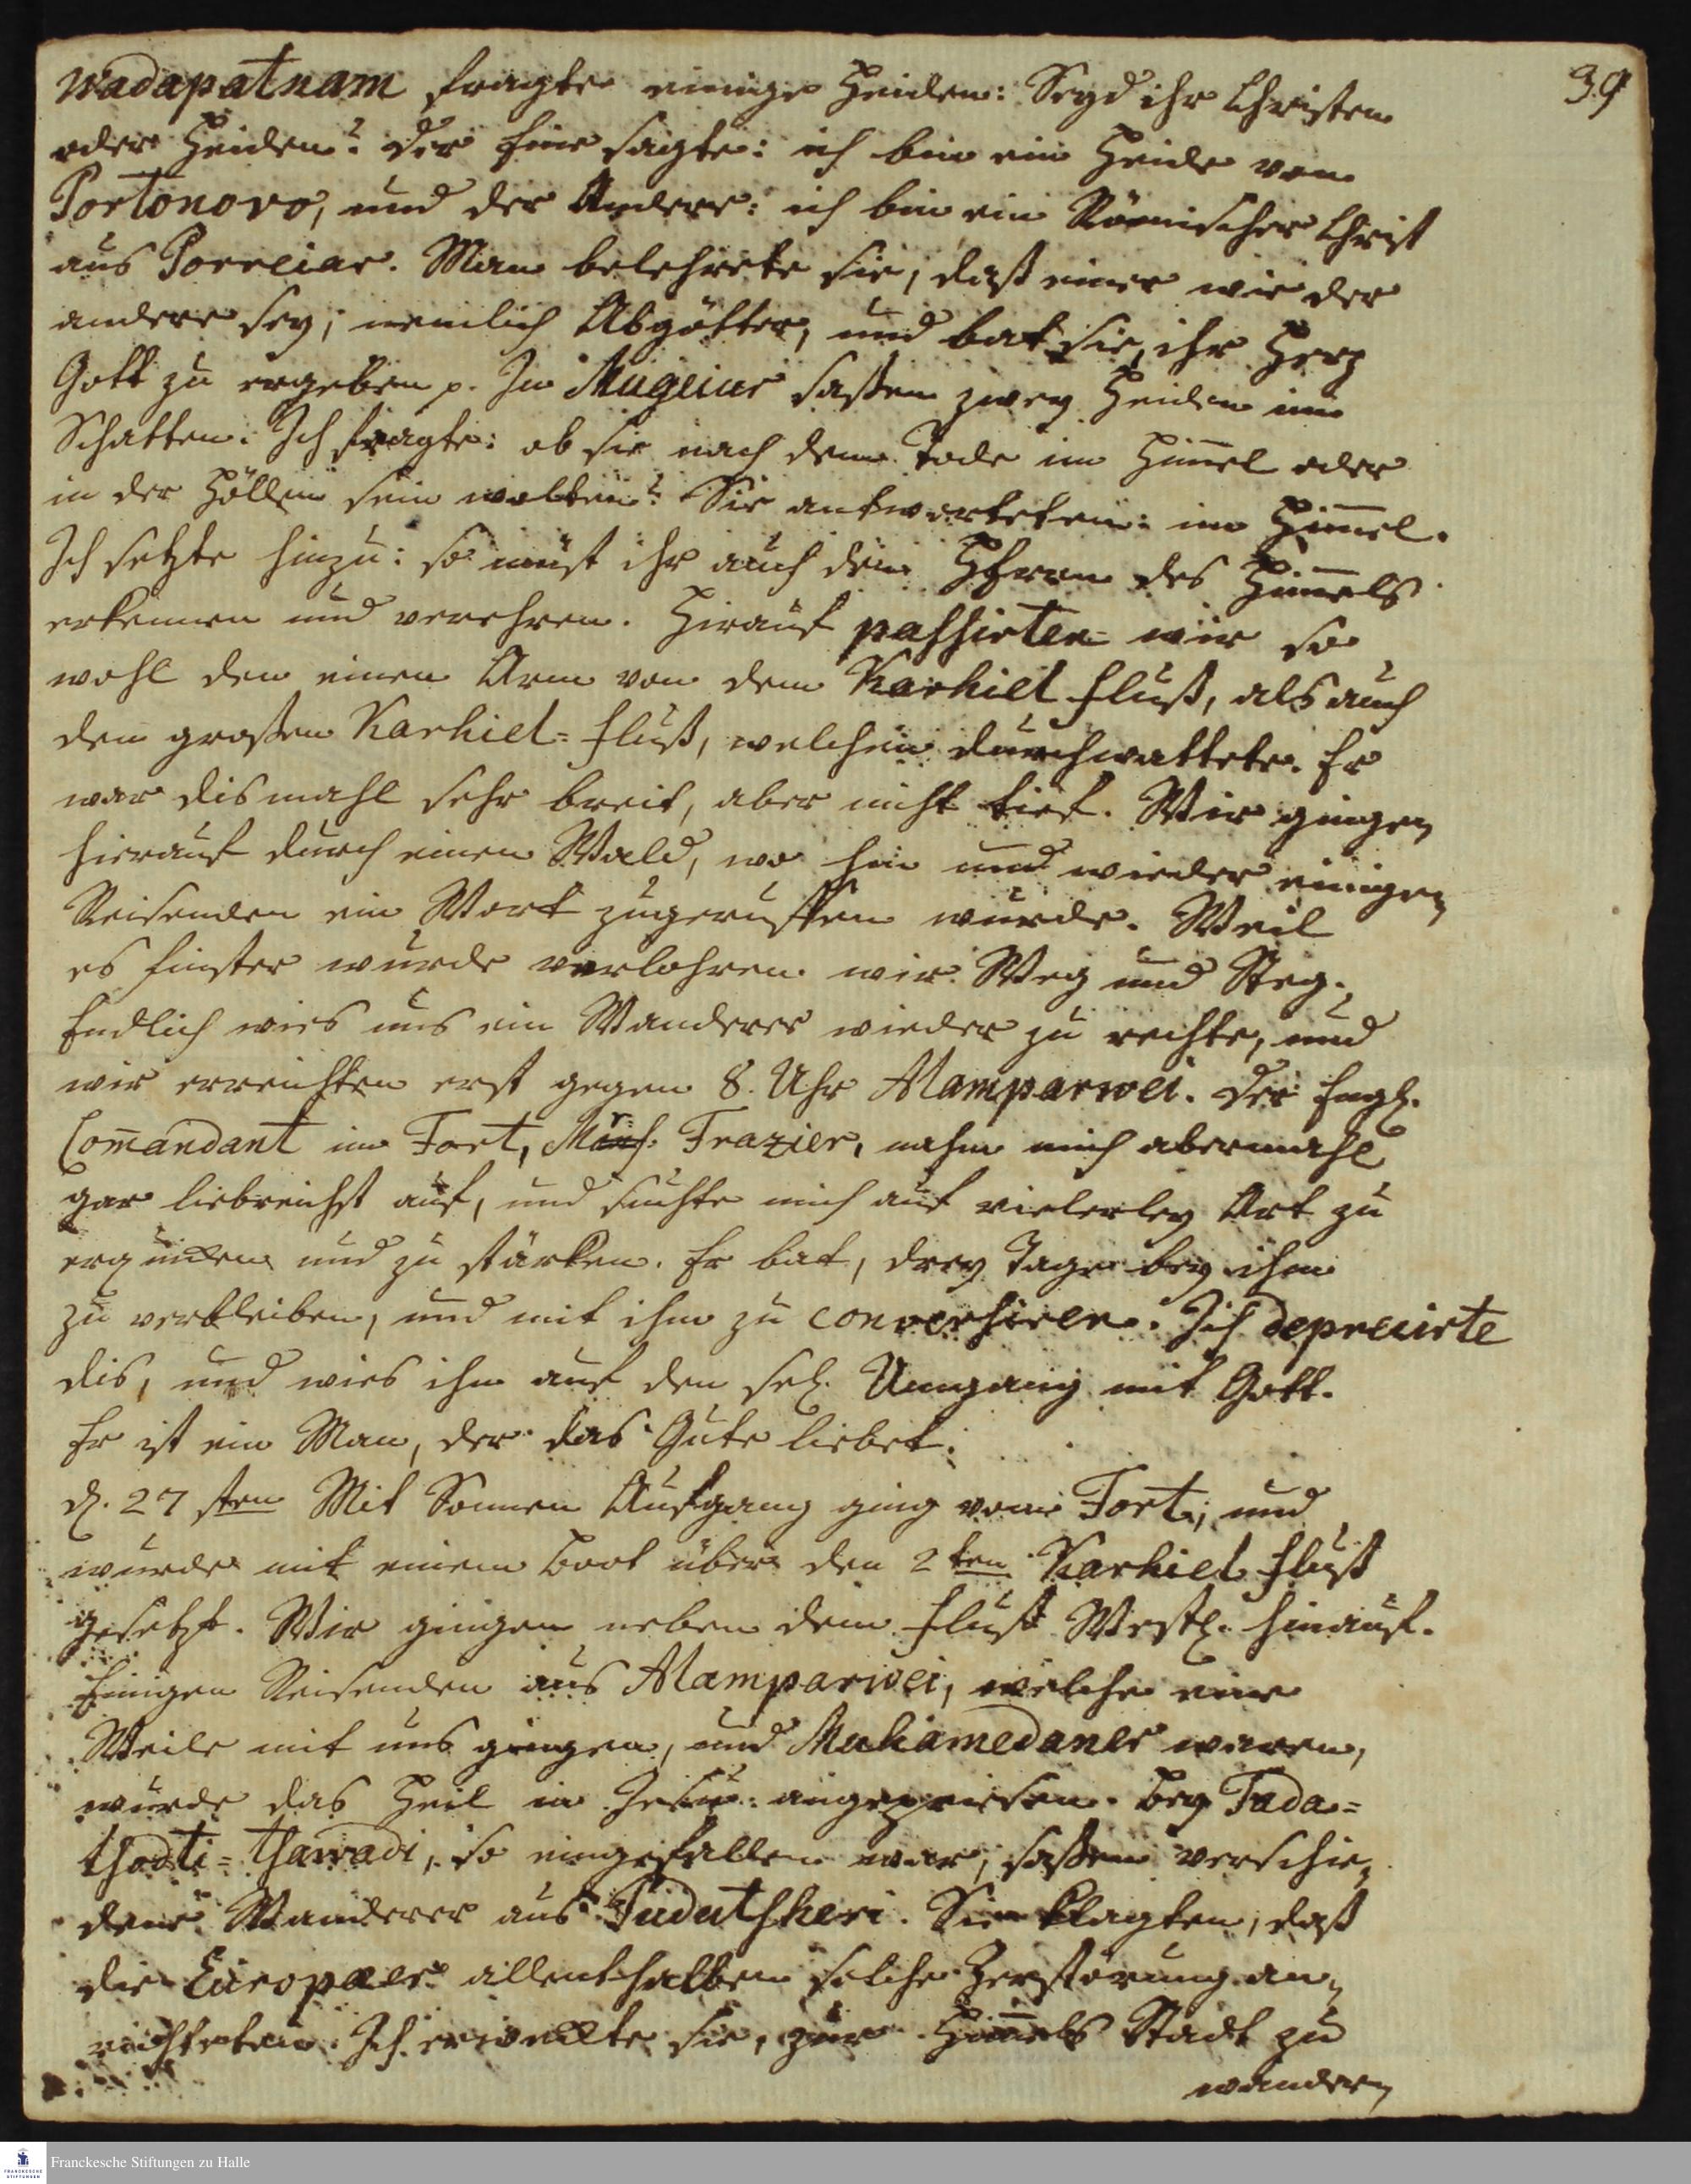 39
Wadapatnam fragte einige Heiden: Seyd ihr Christen
oder Heiden? Der Eine sagte: ich bin ein Heide von
Portonovo, und der Andere: ich bin ein Römischer Christ
aus Porreiar. Man belehrete sie, daß einer wie der
andere sey; nemlich Abgötter, und bat sie, ihr Herz
Gott zu ergeben p. In Mugeiur saßen zwey Heiden im
Schatten. Ich fragte: ob sie nach dem Tode im Him̄el oder
in der Höllen sein wolten? Sie antworteten: im Him̄el.
Ich setzte hinzu: so müst ihr auch den HErrn des Him̄els
erkennen und verehren. Hirauf passirten wir so
wohl den einen Arm von dem Karhiel Fluß, als auch
den großen Karhiel-Fluß, welchen durchwattete. Er
war dismahl sehr breit, aber nicht tief. Wir gingen
hierauf durch einen Wald, wo hin und wieder einigen
Reisenden ein Wort zugeruffen wurde. Weil
es finster wurde verlohren wir Weg und Steg.
Endlich wies uns ein Wanderer wieder zu rechte, und
wir erreichten erst gegen 8. Uhr Alamparwei. Der Engl.
Com̄andant im Fort, Mr. Frazier, nahm mich abermahl
gar liebreichst auf, und suchte mich auf vielerley Art zu
erquicken und zu stärken. Er bat, drey Tage bey ihm
zu verbleiben, und mit ihm zu conversiren. Ich deprecirte
dis, und wies ihn auf den sel. Umgang mit Gott.
Er ist ein Man, der das Gute liebet.
d. 27sten Mit Sonnen Aufgang ging vom Fort, und
wurde mit einem Boot über den 2ten Karhiel Fluß
gesetzt. Wir gingen neben dem Fluß Westl. hinauf.
Einigen Reisenden aus Alamparwei, welche eine
Weile mit uns gingen, und Muhamedaner waren,
wurde das Heil in Jesu angepriesen. Bey Tada-
thodti-thawadi, so eingefallen war, saßen verschie-
dene Wanderer aus Pudutsheri. Sie klagten, daß
die Europäer allenthalben solche Zerstörung an-
richteten. Ich erweckte sie, zur Him̄els Stadt zu
wandern
Franckesche Stiftungen zu Halle
FRANCKESCHE STIFTUNGEN